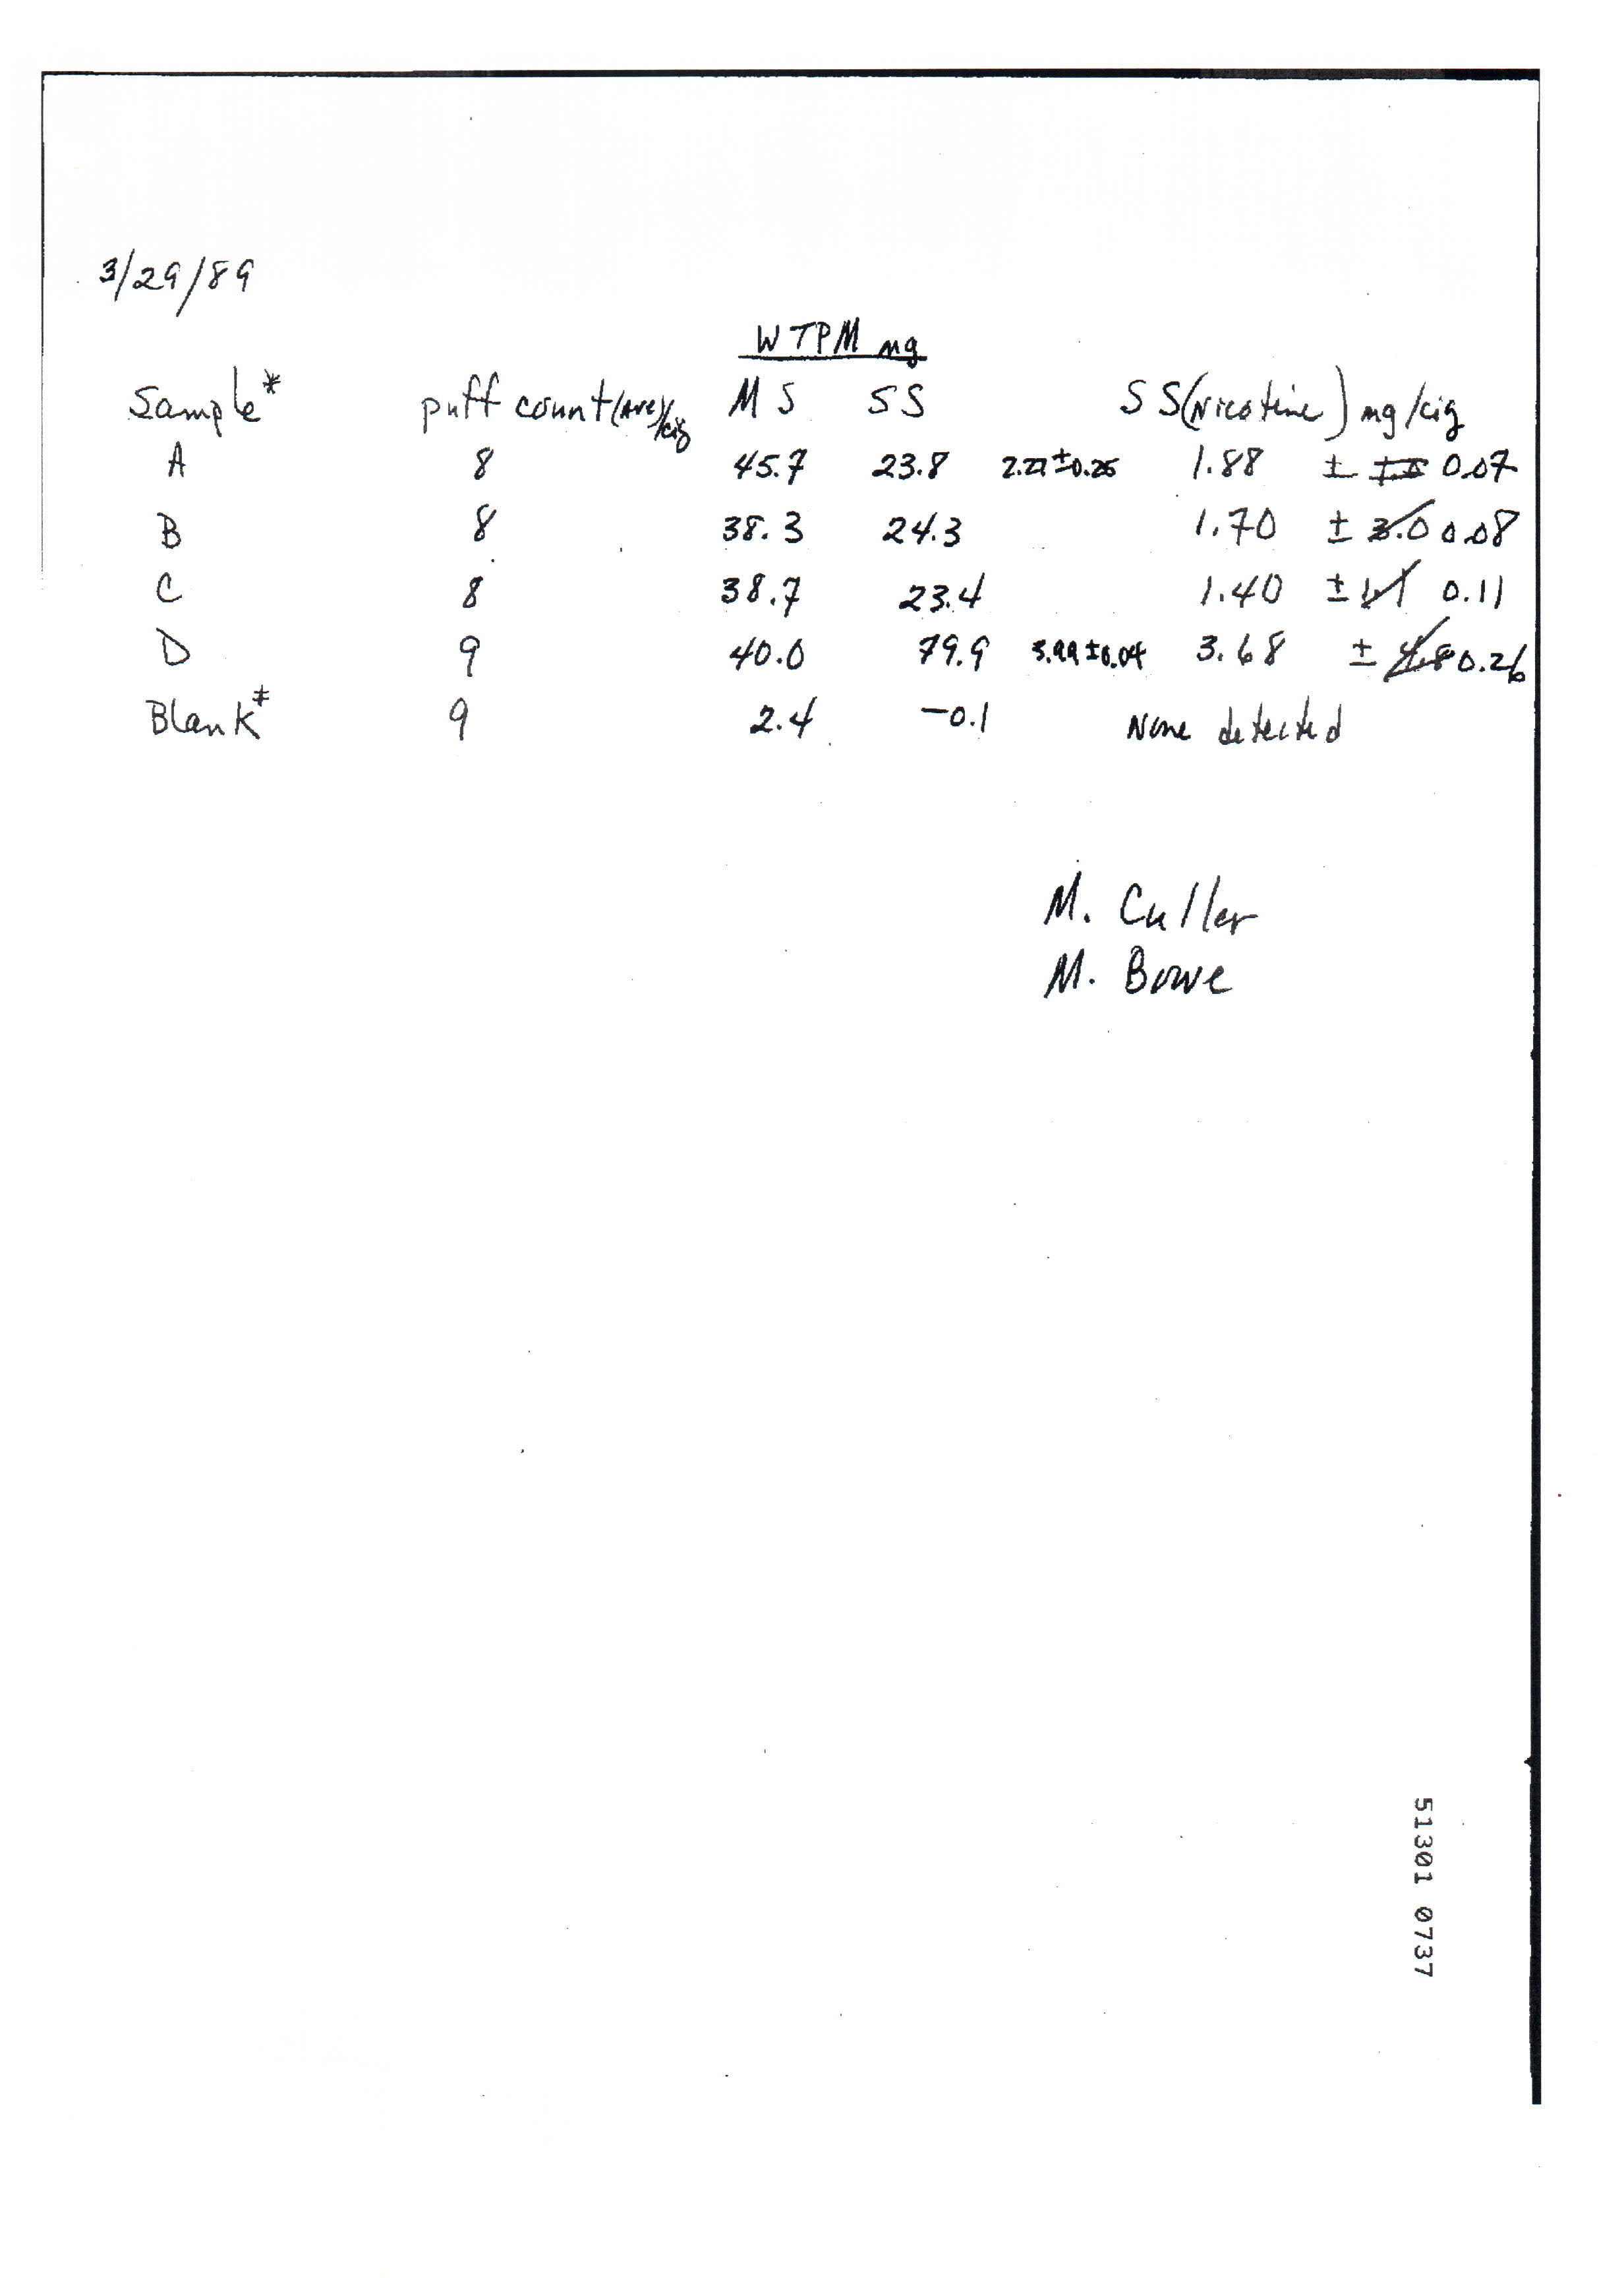 3/29/89
WTPM mg
Sample* puff count (Ave)/cig MS SS SS (Nicotine) mg/cig
A 8 45.7 23.8 2.27 ± 0.25 1.88 ± 0.07
B 8 38.3 24.3 1.70 ± 3.0 0.08
C 8 38.7 23.4 1.40 ± 0.11
D 9 40.0 79.9 3.99 ± 0.04 3.68 ± 0.26
Blank* 9 2.4 -0.1 None detected
M. Culler
M. Bowe
51301 0737